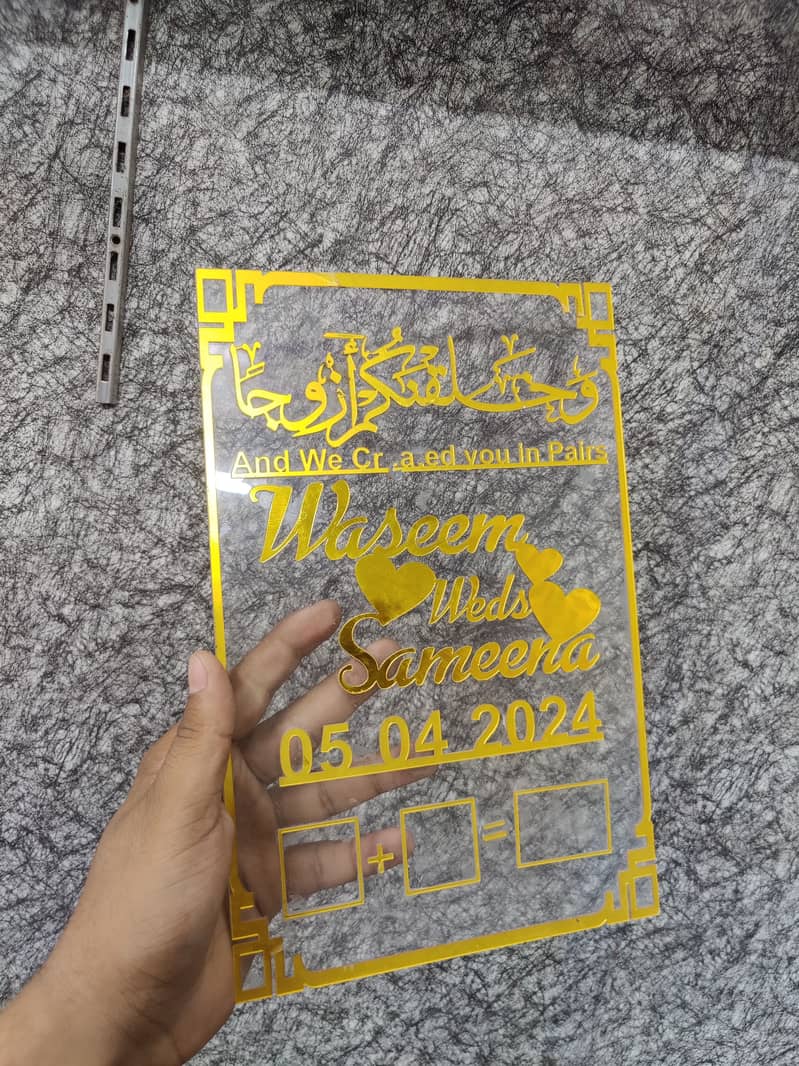 وخلقنكم أزوجا
And We Cr .a.ed you In Pairs
Waseem
Weds
Sameena
05 04 2024
+ =